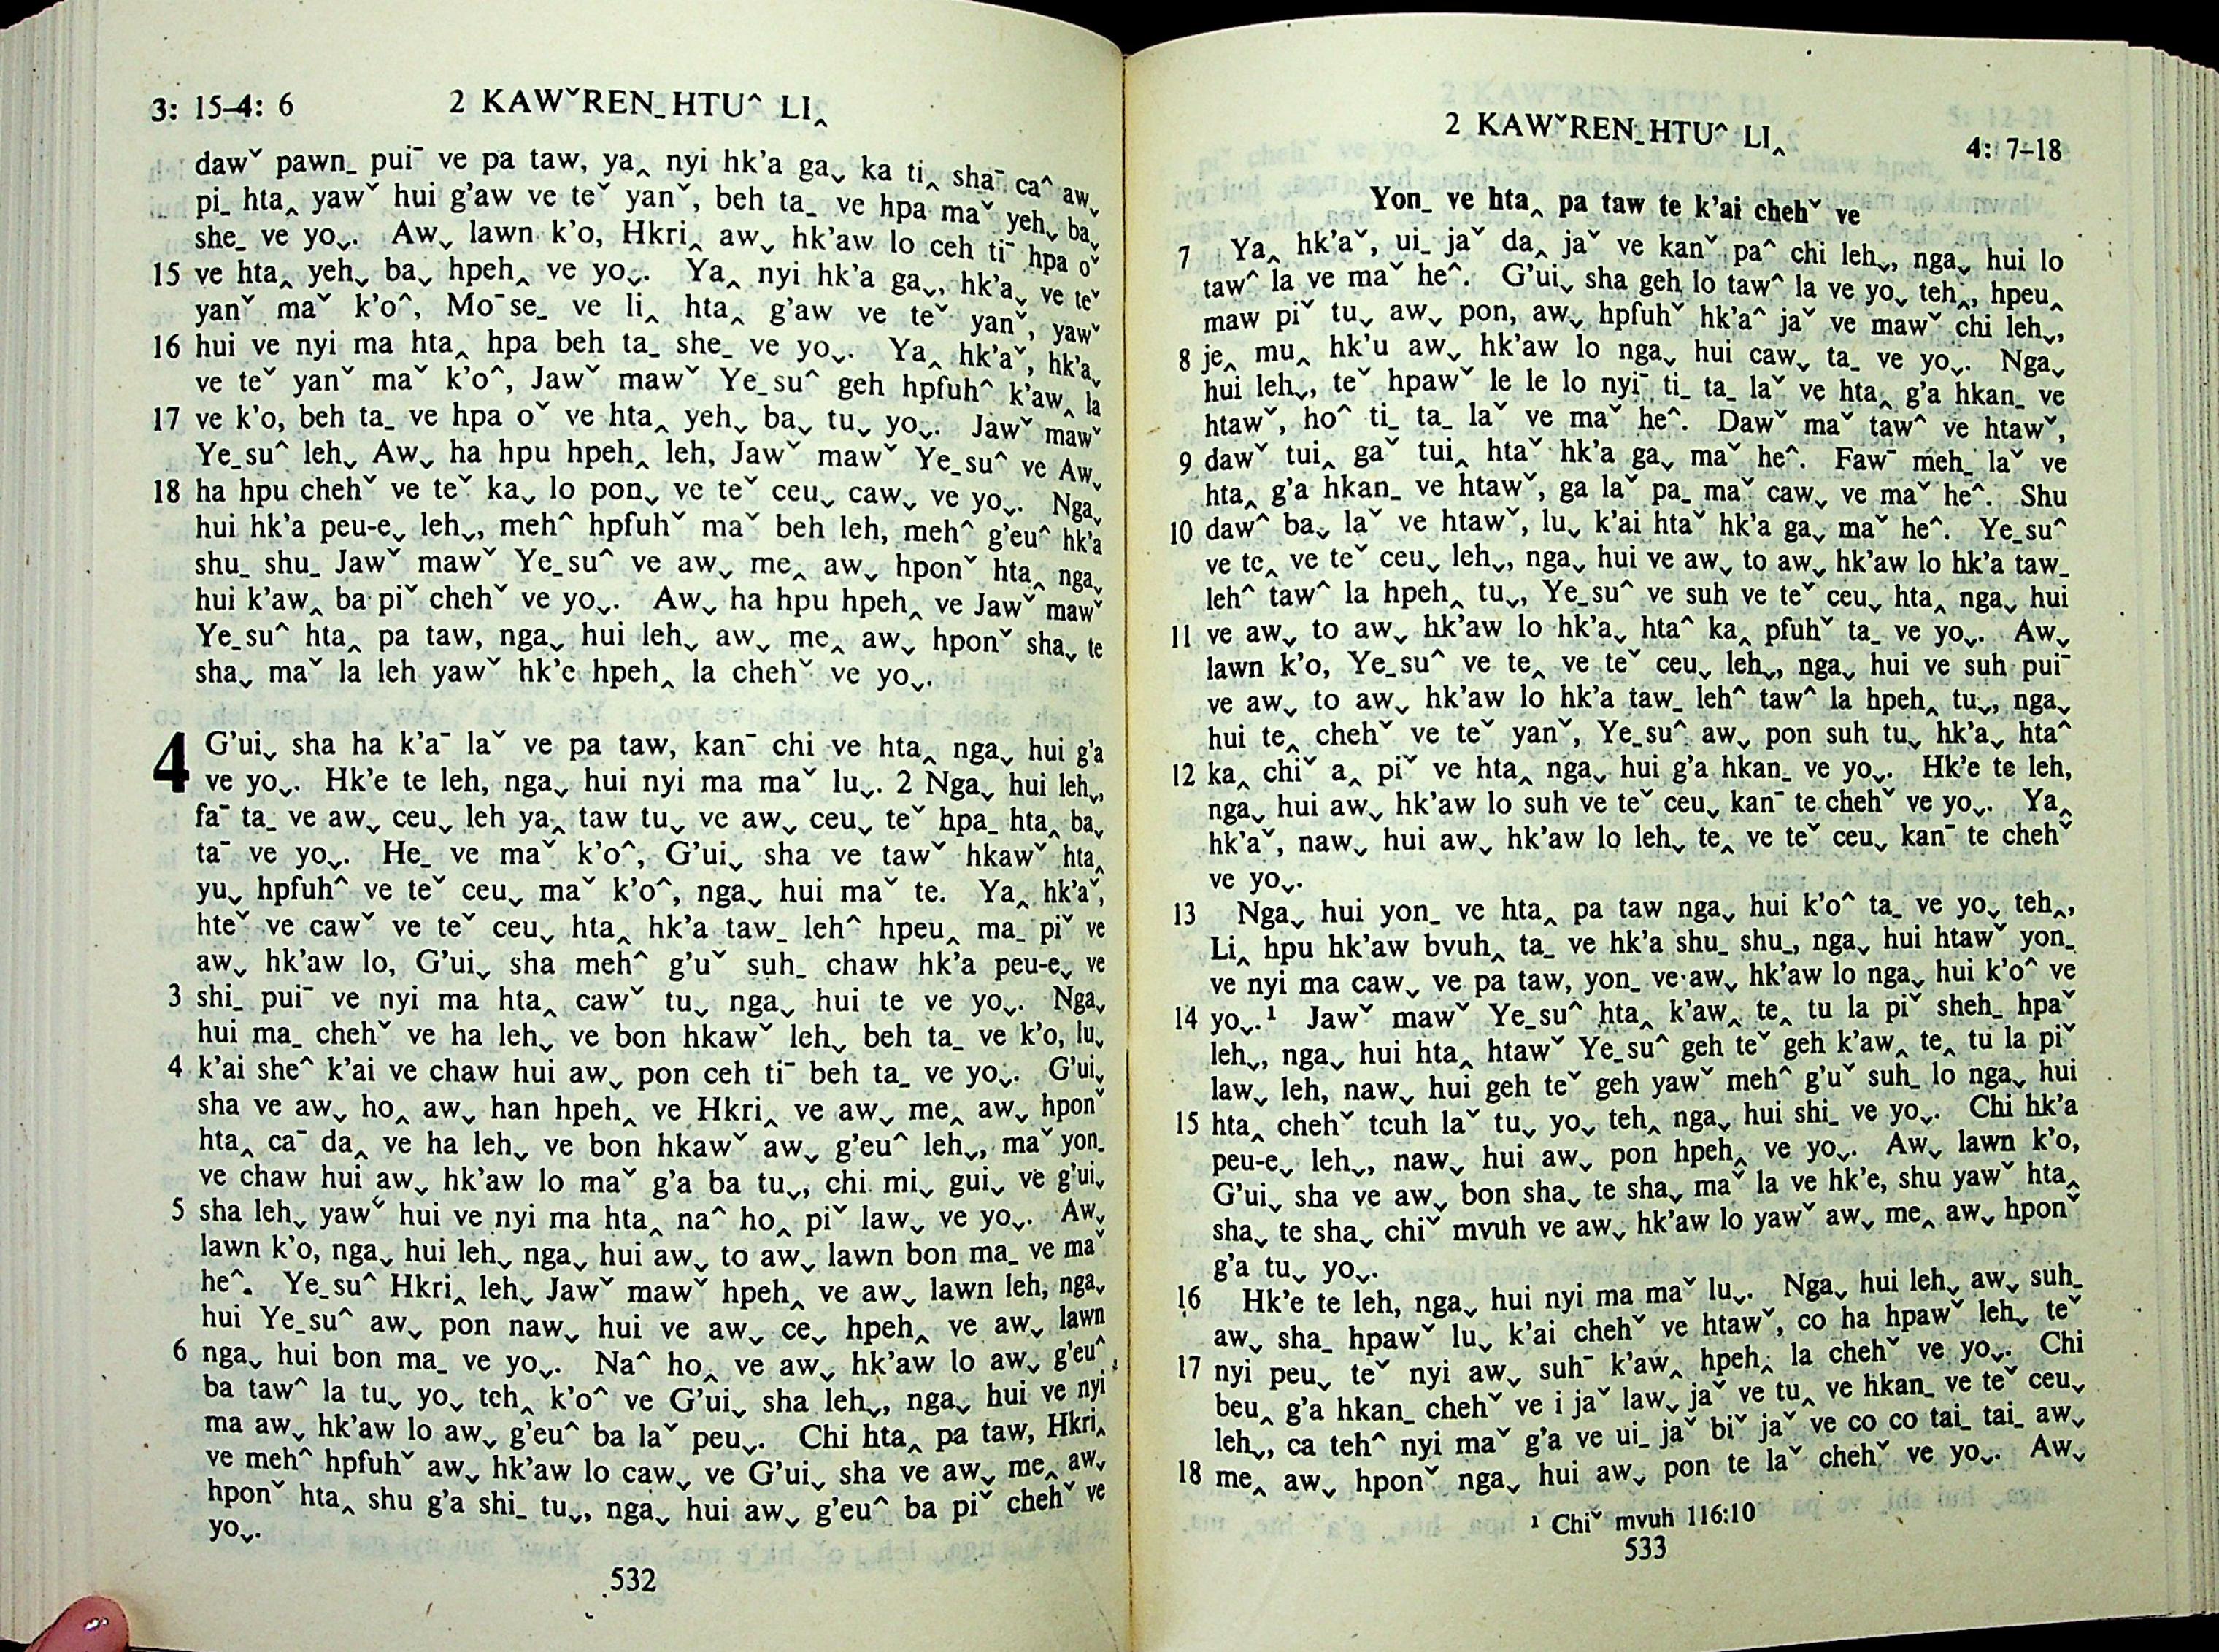 3: 15–4: 6
2 KAWˇREN_HTUˆ LI‸
dawˇ pawn_ pui¯ ve pa taw, ya‸ nyi hk'a ga⌄ ka ti‸ sha¯ caˆ aw⌄
pi_ hta‸ yawˇ hui g'aw ve teˇ yanˇ, beh ta_ ve hpa maˇ yeh⌄ ba⌄
she_ ve yo⌄. Aw⌄ lawn k'o, Hkri‸ aw⌄ hk'aw lo ceh ti¯ hpa oˇ
15 ve hta‸ yeh⌄ ba⌄ hpeh‸ ve yo⌄. Ya‸ nyi hk'a ga⌄, hk'a⌄ ve teˇ
yanˇ maˇ k'oˆ, Mo¯se_ ve li‸ hta‸ g'aw ve teˇ yanˇ, yawˇ
16 hui ve nyi ma hta‸ hpa beh ta_ she_ ve yo⌄. Ya‸ hk'aˇ, hk'a⌄
ve teˇ yanˇ maˇ k'oˆ, Jawˇ mawˇ Ye_suˆ geh hpfuhˆ k'aw‸ la
17 ve k'o, beh ta_ ve hpa oˇ ve hta‸ yeh⌄ ba⌄ tu⌄ yo⌄. Jawˇ mawˇ
Ye_suˆ leh⌄ Aw⌄ ha hpu hpeh‸ leh, Jawˇ mawˇ Ye_suˆ ve Aw⌄
18 ha hpu chehˇ ve teˇ ka⌄ lo pon⌄ ve teˇ ceu⌄ caw⌄ ve yo⌄. Nga⌄
hui hk'a peu-e⌄ leh⌄, mehˆ hpfuhˇ maˇ beh leh, mehˆ g'euˆ hk'a
shu_ shu_ Jawˇ mawˇ Ye_suˆ ve aw⌄ me‸ aw⌄ hponˇ hta‸ nga⌄
hui k'aw‸ ba piˇ chehˇ ve yo⌄. Aw⌄ ha hpu hpeh‸ ve Jawˇ mawˇ
Ye_suˆ hta‸ pa taw, nga⌄ hui leh⌄ aw⌄ me‸ aw⌄ hponˇ sha⌄ te
sha⌄ maˇ la leh yawˇ hk'e hpeh‸ la chehˇ ve yo⌄.
4 G'ui⌄ sha ha k'a¯ laˇ ve pa taw, kan¯ chi ve hta‸ nga⌄ hui g'a
ve yo⌄. Hk'e te leh, nga⌄ hui nyi ma maˇ lu⌄. 2 Nga⌄ hui leh⌄,
fa¯ ta_ ve aw⌄ ceu⌄ leh ya‸ taw tu⌄ ve aw⌄ ceu⌄ teˇ hpa_ hta‸ ba⌄
ta¯ ve yo⌄. He_ ve maˇ k'oˆ, G'ui⌄ sha ve tawˇ hkawˇ hta‸
yu⌄ hpfuhˆ ve teˇ ceu⌄ maˇ k'oˆ, nga⌄ hui maˇ te. Ya‸ hk'aˇ,
hteˇ ve cawˇ ve teˇ ceu⌄ hta‸ hk'a taw_ lehˆ hpeu‸ ma_ piˇ ve
aw⌄ hk'aw lo, G'ui⌄ sha mehˆ g'uˇ suh_ chaw hk'a peu-e⌄ ve
3 shi_ pui¯ ve nyi ma hta‸ cawˇ tu⌄ nga⌄ hui te ve yo⌄. Nga⌄
hui ma_ chehˇ ve ha leh⌄ ve bon hkawˇ leh⌄ beh ta_ ve k'o, lu⌄
4 k'ai sheˆ k'ai ve chaw hui aw⌄ pon ceh ti¯ beh ta_ ve yo⌄. G'ui⌄
sha ve aw⌄ ho‸ aw⌄ han hpeh‸ ve Hkri‸ ve aw⌄ me‸ aw⌄ hponˇ
hta‸ ca¯ da‸ ve ha leh⌄ ve bon hkawˇ aw⌄ g'euˆ leh⌄, maˇ yon_
ve chaw hui aw⌄ hk'aw lo maˇ g'a ba tu⌄, chi mi⌄ gui⌄ ve g'ui⌄
5 sha leh⌄ yawˇ hui ve nyi ma hta‸ naˆ ho‸ piˇ law⌄ ve yo⌄. Aw⌄
lawn k'o, nga⌄ hui leh⌄ nga⌄ hui aw⌄ to aw⌄ lawn bon ma_ ve maˇ
heˆ. Ye_suˆ Hkri‸ leh⌄ Jawˇ mawˇ hpeh‸ ve aw⌄ lawn leh, nga⌄
hui Ye_suˆ aw⌄ pon naw⌄ hui ve aw⌄ ce⌄ hpeh‸ ve aw⌄ lawn
6 nga⌄ hui bon ma_ ve yo⌄. Naˆ ho‸ ve aw⌄ hk'aw lo aw⌄ g'euˆ
ba tawˆ la tu⌄ yo⌄ teh‸ k'oˆ ve G'ui⌄ sha leh⌄, nga⌄ hui ve nyi
ma aw⌄ hk'aw lo aw⌄ g'euˆ ba laˇ peu⌄. Chi hta‸ pa taw, Hkri‸
ve mehˆ hpfuhˇ aw⌄ hk'aw lo caw⌄ ve G'ui⌄ sha ve aw⌄ me‸ aw⌄
hponˇ hta‸ shu g'a shi_ tu⌄, nga⌄ hui aw⌄ g'euˆ ba piˇ chehˇ ve
yo⌄.
532
2 KAWˇREN_HTUˆ LI‸
4: 7–18
Yon_ ve hta‸ pa taw te k'ai chehˇ ve
7 Ya‸ hk'aˇ, ui_ jaˇ da‸ jaˇ ve kanˇ paˆ chi leh⌄, nga⌄ hui lo
tawˆ la ve maˇ heˆ. G'ui⌄ sha geh lo tawˆ la ve yo⌄ teh‸, hpeu‸
maw piˇ tu⌄ aw⌄ pon, aw⌄ hpfuhˇ hk'aˆ jaˇ ve mawˇ chi leh⌄,
8 je‸ mu‸ hk'u aw⌄ hk'aw lo nga⌄ hui caw⌄ ta_ ve yo⌄. Nga⌄
hui leh⌄, teˇ hpawˇ le le lo nyi¯ ti_ ta_ laˇ ve hta‸ g'a hkan_ ve
htawˇ, hoˆ ti_ ta_ laˇ ve maˇ heˆ. Dawˇ maˇ tawˆ ve htawˇ,
9 dawˇ tui‸ gaˇ tui‸ htaˇ hk'a ga⌄ maˇ heˆ. Faw¯ meh_ laˇ ve
hta‸ g'a hkan_ ve htawˇ, ga laˇ pa_ maˇ caw⌄ ve maˇ heˆ. Shu
10 dawˆ ba⌄ laˇ ve htawˇ, lu⌄ k'ai htaˇ hk'a ga⌄ maˇ heˆ. Ye_suˆ
ve te‸ ve teˇ ceu⌄ leh⌄, nga⌄ hui ve aw⌄ to aw⌄ hk'aw lo hk'a taw_
lehˆ tawˆ la hpeh‸ tu⌄, Ye_suˆ ve suh ve teˇ ceu⌄ hta‸ nga⌄ hui
11 ve aw⌄ to aw⌄ hk'aw lo hk'a⌄ htaˆ ka‸ pfuhˇ ta_ ve yo⌄. Aw⌄
lawn k'o, Ye_suˆ ve te‸ ve teˇ ceu⌄ leh⌄, nga⌄ hui ve suh pui¯
ve aw⌄ to aw⌄ hk'aw lo hk'a taw_ lehˆ tawˆ la hpeh‸ tu⌄, nga⌄
hui te‸ chehˇ ve teˇ yanˇ, Ye_suˆ aw⌄ pon suh tu⌄ hk'a⌄ htaˆ
12 ka‸ chiˇ a‸ piˇ ve hta‸ nga⌄ hui g'a hkan_ ve yo⌄. Hk'e te leh,
nga⌄ hui aw⌄ hk'aw lo suh ve teˇ ceu⌄ kan¯ te chehˇ ve yo⌄. Ya‸
hk'aˇ, naw⌄ hui aw⌄ hk'aw lo leh⌄ te‸ ve teˇ ceu⌄ kan¯ te chehˇ
ve yo⌄.
13 Nga⌄ hui yon_ ve hta‸ pa taw nga⌄ hui k'oˆ ta_ ve yo⌄ teh‸,
Li‸ hpu hk'aw bvuh‸ ta_ ve hk'a shu_ shu_, nga⌄ hui htawˇ yon_
ve nyi ma caw⌄ ve pa taw, yon_ ve aw⌄ hk'aw lo nga⌄ hui k'oˆ ve
14 yo⌄.¹ Jawˇ mawˇ Ye_suˆ hta‸ k'aw‸ te‸ tu la piˇ sheh_ hpaˇ
leh⌄, nga⌄ hui hta‸ htawˇ Ye_suˆ geh teˇ geh k'aw‸ te‸ tu la piˇ
law⌄ leh, naw⌄ hui geh teˇ geh yawˇ mehˆ g'uˇ suh_ lo nga⌄ hui
15 hta‸ chehˇ tcuh laˇ tu⌄ yo⌄ teh‸ nga⌄ hui shi_ ve yo⌄. Chi hk'a
peu-e⌄ leh⌄, naw⌄ hui aw⌄ pon hpeh‸ ve yo⌄. Aw⌄ lawn k'o,
G'ui⌄ sha ve aw⌄ bon sha⌄ te sha⌄ maˇ la ve hk'e, shu yawˇ hta‸
sha⌄ te sha⌄ chiˇ mvuh ve aw⌄ hk'aw lo yawˇ aw⌄ me‸ aw⌄ hponˇ
g'a tu⌄ yo⌄.
16 Hk'e te leh, nga⌄ hui nyi ma maˇ lu⌄. Nga⌄ hui leh⌄ aw⌄ suh_
aw⌄ sha_ hpawˇ lu⌄ k'ai chehˇ ve htawˇ, co ha hpawˇ leh⌄ teˇ
17 nyi peu⌄ teˇ nyi aw⌄ suh¯ k'aw‸ hpeh‸ la chehˇ ve yo⌄. Chi
beu‸ g'a hkan_ chehˇ ve i jaˇ law⌄ jaˇ ve tu‸ ve hkan_ ve teˇ ceu⌄
leh⌄, ca tehˆ nyi maˇ g'a ve ui_ jaˇ biˇ jaˇ ve co co tai_ tai_ aw⌄
18 me‸ aw⌄ hponˇ nga⌄ hui aw⌄ pon te laˇ chehˇ ve yo⌄. Aw⌄
¹ Chiˇ mvuh 116:10
533